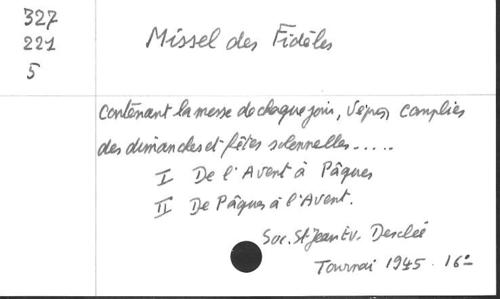 327
221
5
Missel des Fidèles
contenant la messe de chaque jour, Vêpres, complies
des dimanches et fêtes solennelles.....
I De l'Avent à Pâques
II De Pâques à l'Avent.
Soc. St Jean Ev. Desclée
Tournai 1945. 16°